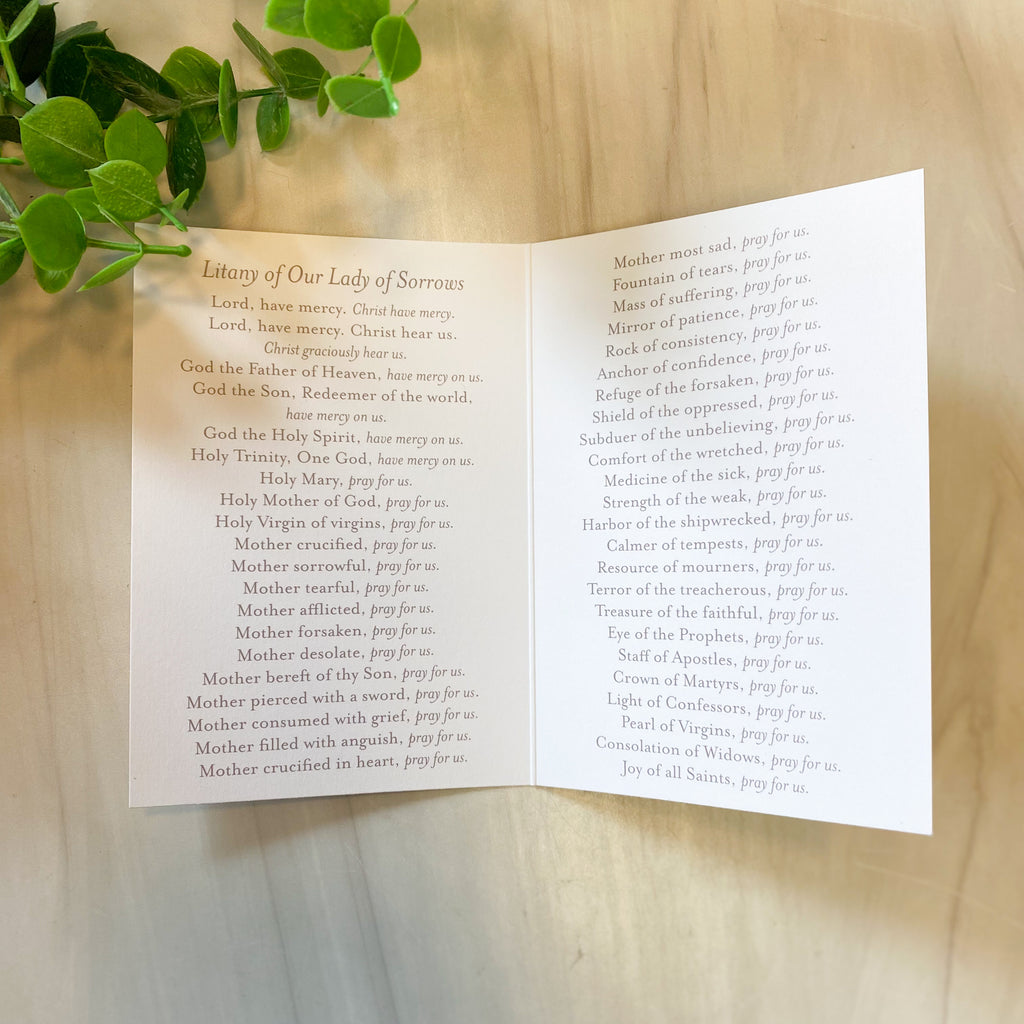 Litany of Our Lady of Sorrows
Lord, have mercy. Christ have mercy.
Lord, have mercy. Christ hear us.
Christ graciously hear us.
God the Father of Heaven, have mercy on us.
God the Son, Redeemer of the world,
have mercy on us.
God the Holy Spirit, have mercy on us.
Holy Trinity, One God, have mercy on us.
Holy Mary, pray for us.
Holy Mother of God, pray for us.
Holy Virgin of virgins, pray for us.
Mother crucified, pray for us.
Mother sorrowful, pray for us.
Mother tearful, pray for us.
Mother afflicted, pray for us.
Mother forsaken, pray for us.
Mother desolate, pray for us.
Mother bereft of thy Son, pray for us.
Mother pierced with a sword, pray for us.
Mother consumed with grief, pray for us.
Mother filled with anguish, pray for us.
Mother crucified in heart, pray for us.
Mother most sad, pray for us.
Fountain of tears, pray for us.
Mass of suffering, pray for us.
Mirror of patience, pray for us.
Rock of consistency, pray for us.
Anchor of confidence, pray for us.
Refuge of the forsaken, pray for us.
Shield of the oppressed, pray for us.
Subduer of the unbelieving, pray for us.
Comfort of the wretched, pray for us.
Medicine of the sick, pray for us.
Strength of the weak, pray for us.
Harbor of the shipwrecked, pray for us.
Calmer of tempests, pray for us.
Resource of mourners, pray for us.
Terror of the treacherous, pray for us.
Treasure of the faithful, pray for us.
Eye of the Prophets, pray for us.
Staff of Apostles, pray for us.
Crown of Martyrs, pray for us.
Light of Confessors, pray for us.
Pearl of Virgins, pray for us.
Consolation of Widows, pray for us.
Joy of all Saints, pray for us.